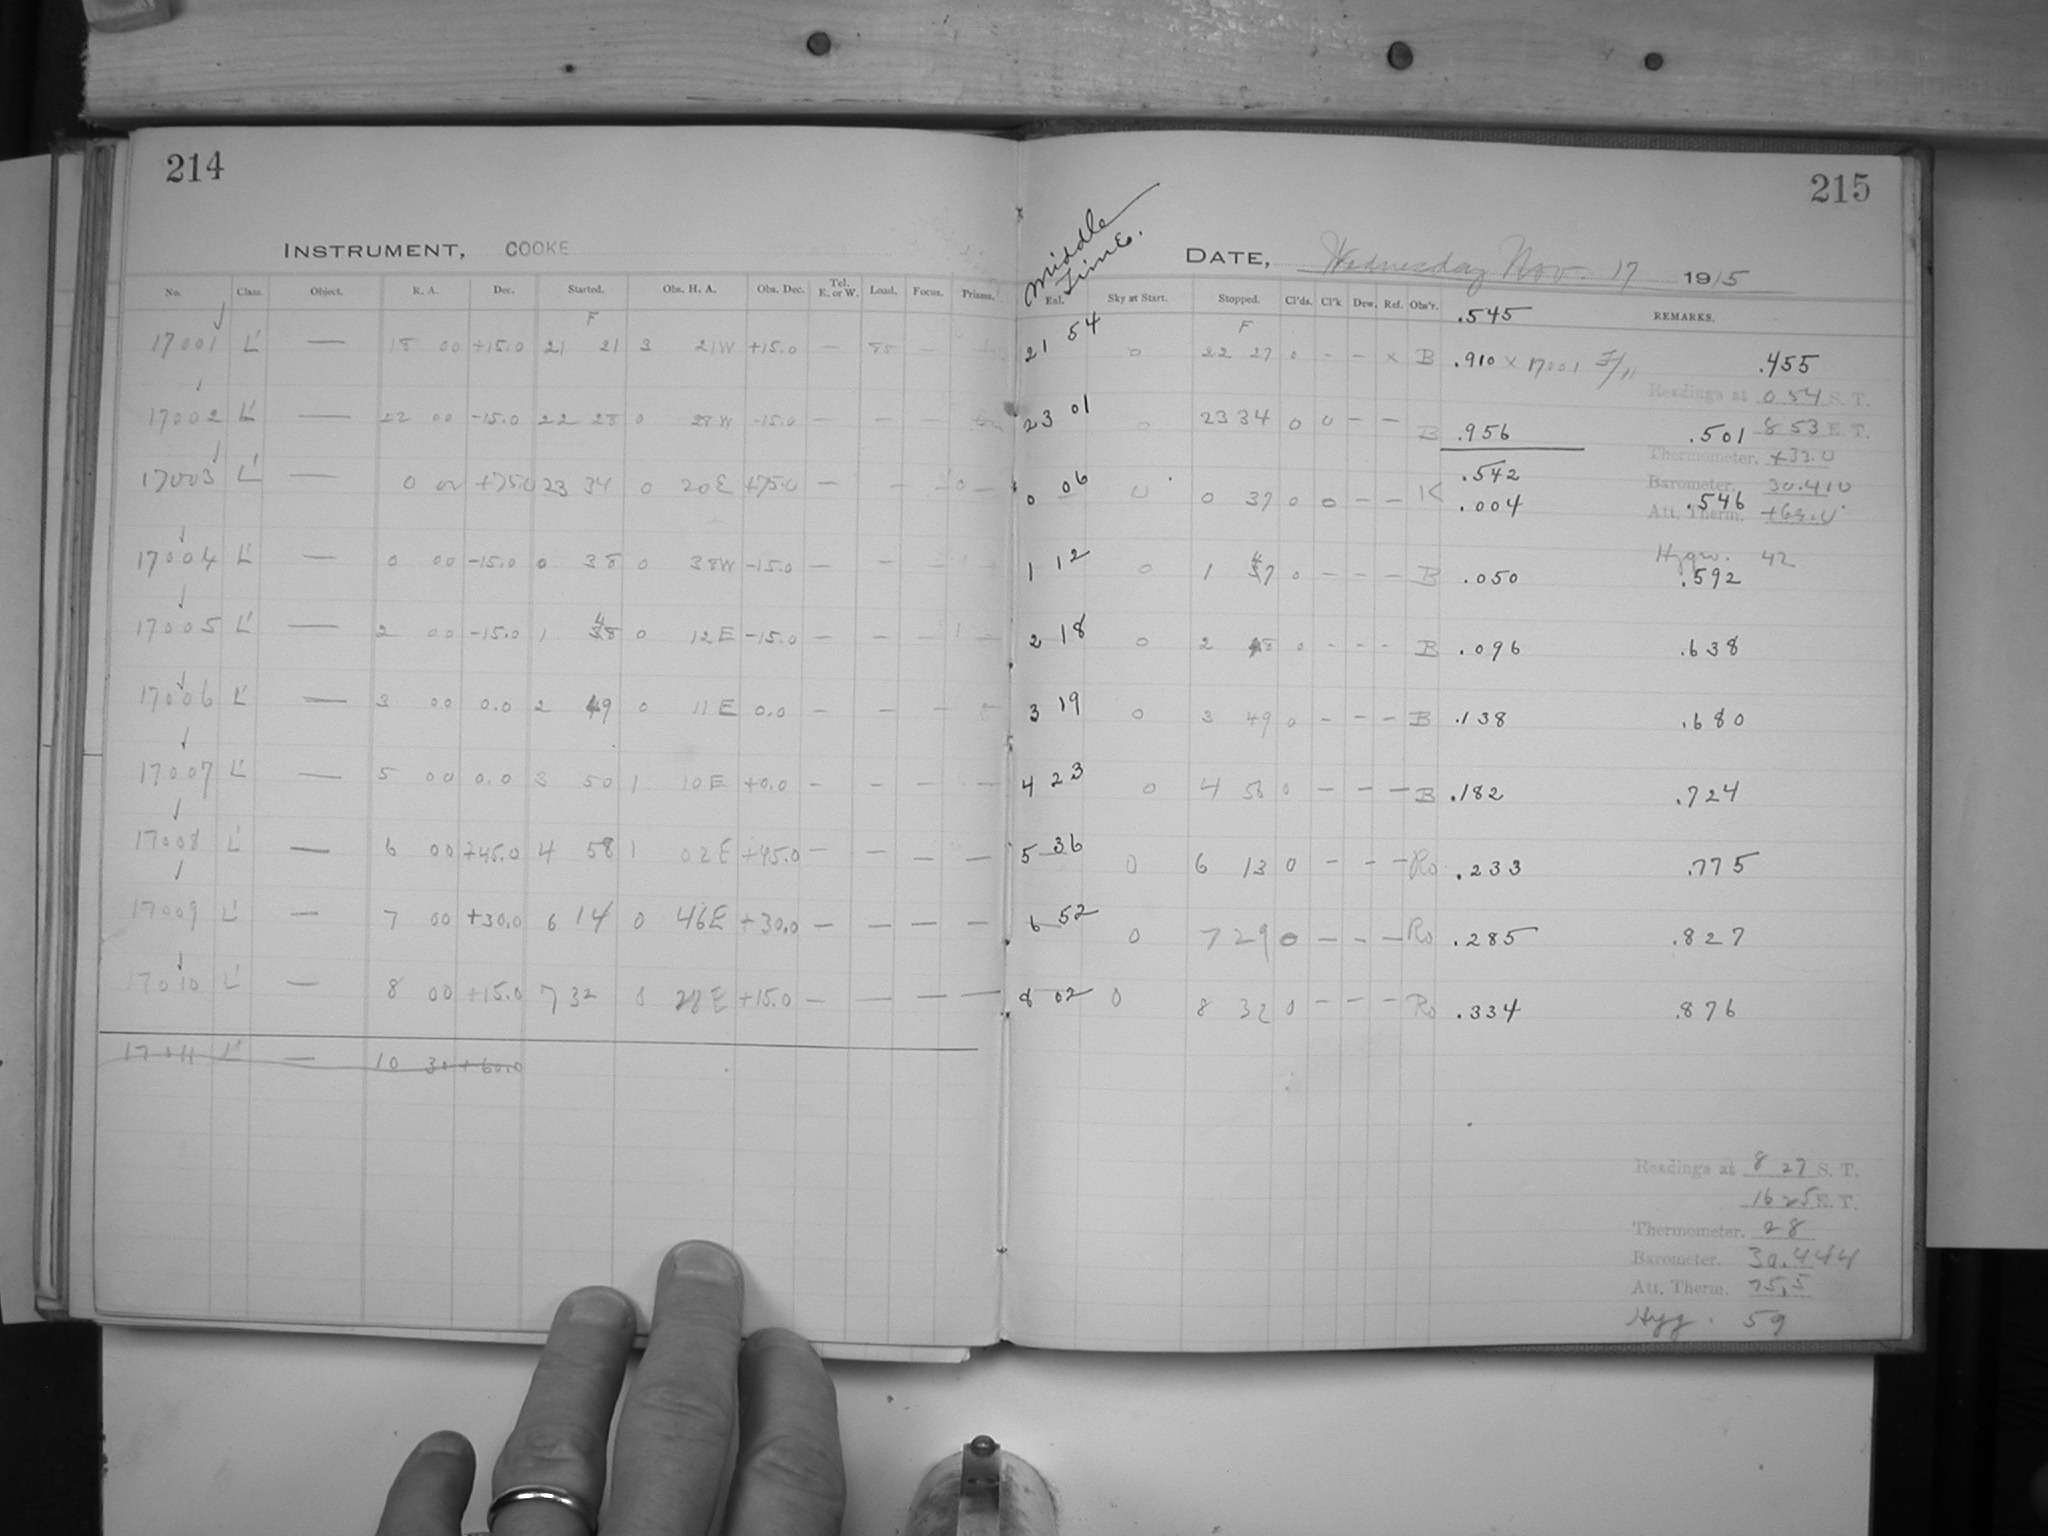 214
INSTRUMENT, COOKE
No. Class. Object. R. A. Dec. Started. Obs. H. A. Obs. Dec. Tel. E. or W. Load. Focus. Prisms.
F
17001 L' — 18 00 +15.0 21 21 3 21W +15.0 —
17002 L' — 22 00 -15.0 22 28 0 28W -15.0 — — —
17003 L' — 0 00 +75.0 23 34 0 20E +75.0 — — —
17004 L' — 0 00 -15.0 0 38 0 38W -15.0 — — —
17005 L' — 2 00 -15.0 1 48 0 12E -15.0 — — —
17006 L' — 3 00 0.0 2 49 0 11E 0.0 — — —
17007 L' — 5 00 0.0 3 50 1 10E +0.0 — — — —
17008 L' — 6 00 +45.0 4 58 1 02E +45.0 — — — —
17009 L' — 7 00 +30.0 6 14 0 46E +30.0 — — — —
17010 L' — 8 00 +15.0 7 32 0 28E +15.0 — — — —
17011 L' — 10 30 +60.0
215
Middle Time.
DATE, Wednesday Nov. 17 1915
Exl. Sky at Start. Stopped. Cl'ds. Cl'k Dew. Ref. Obs'r. REMARKS.
.545
F
21 54 0 22 27 0 - - x B .910 x 17001 F/11 .455
Readings at 0 54 S. T.
8 53 E. T.
23 01 0 23 34 0 0 - - B .956 .501
Thermometer. +33.0
.542
Barometer. 30.410
0 06 0 0 37 0 0 - - K .004 .546
Att. Therm.
Hygro. 42
1 12 0 1 47 0 - - - B .050 .592
2 18 0 2 48 0 - - - B .096 .638
3 19 0 3 49 0 - - - B .138 .680
4 23 0 4 56 0 - - - B .182 .724
5 36 0 6 13 0 - - - Ro .233 .775
6 52 0 7 29 0 - - - Ro .285 .827
8 02 0 8 32 0 - - - Ro .334 .876
Readings at 8 27 S. T.
16 25 E. T.
Thermometer. 28
Barometer. 30.444
Att. Therm. 75,5
Hyg. 59